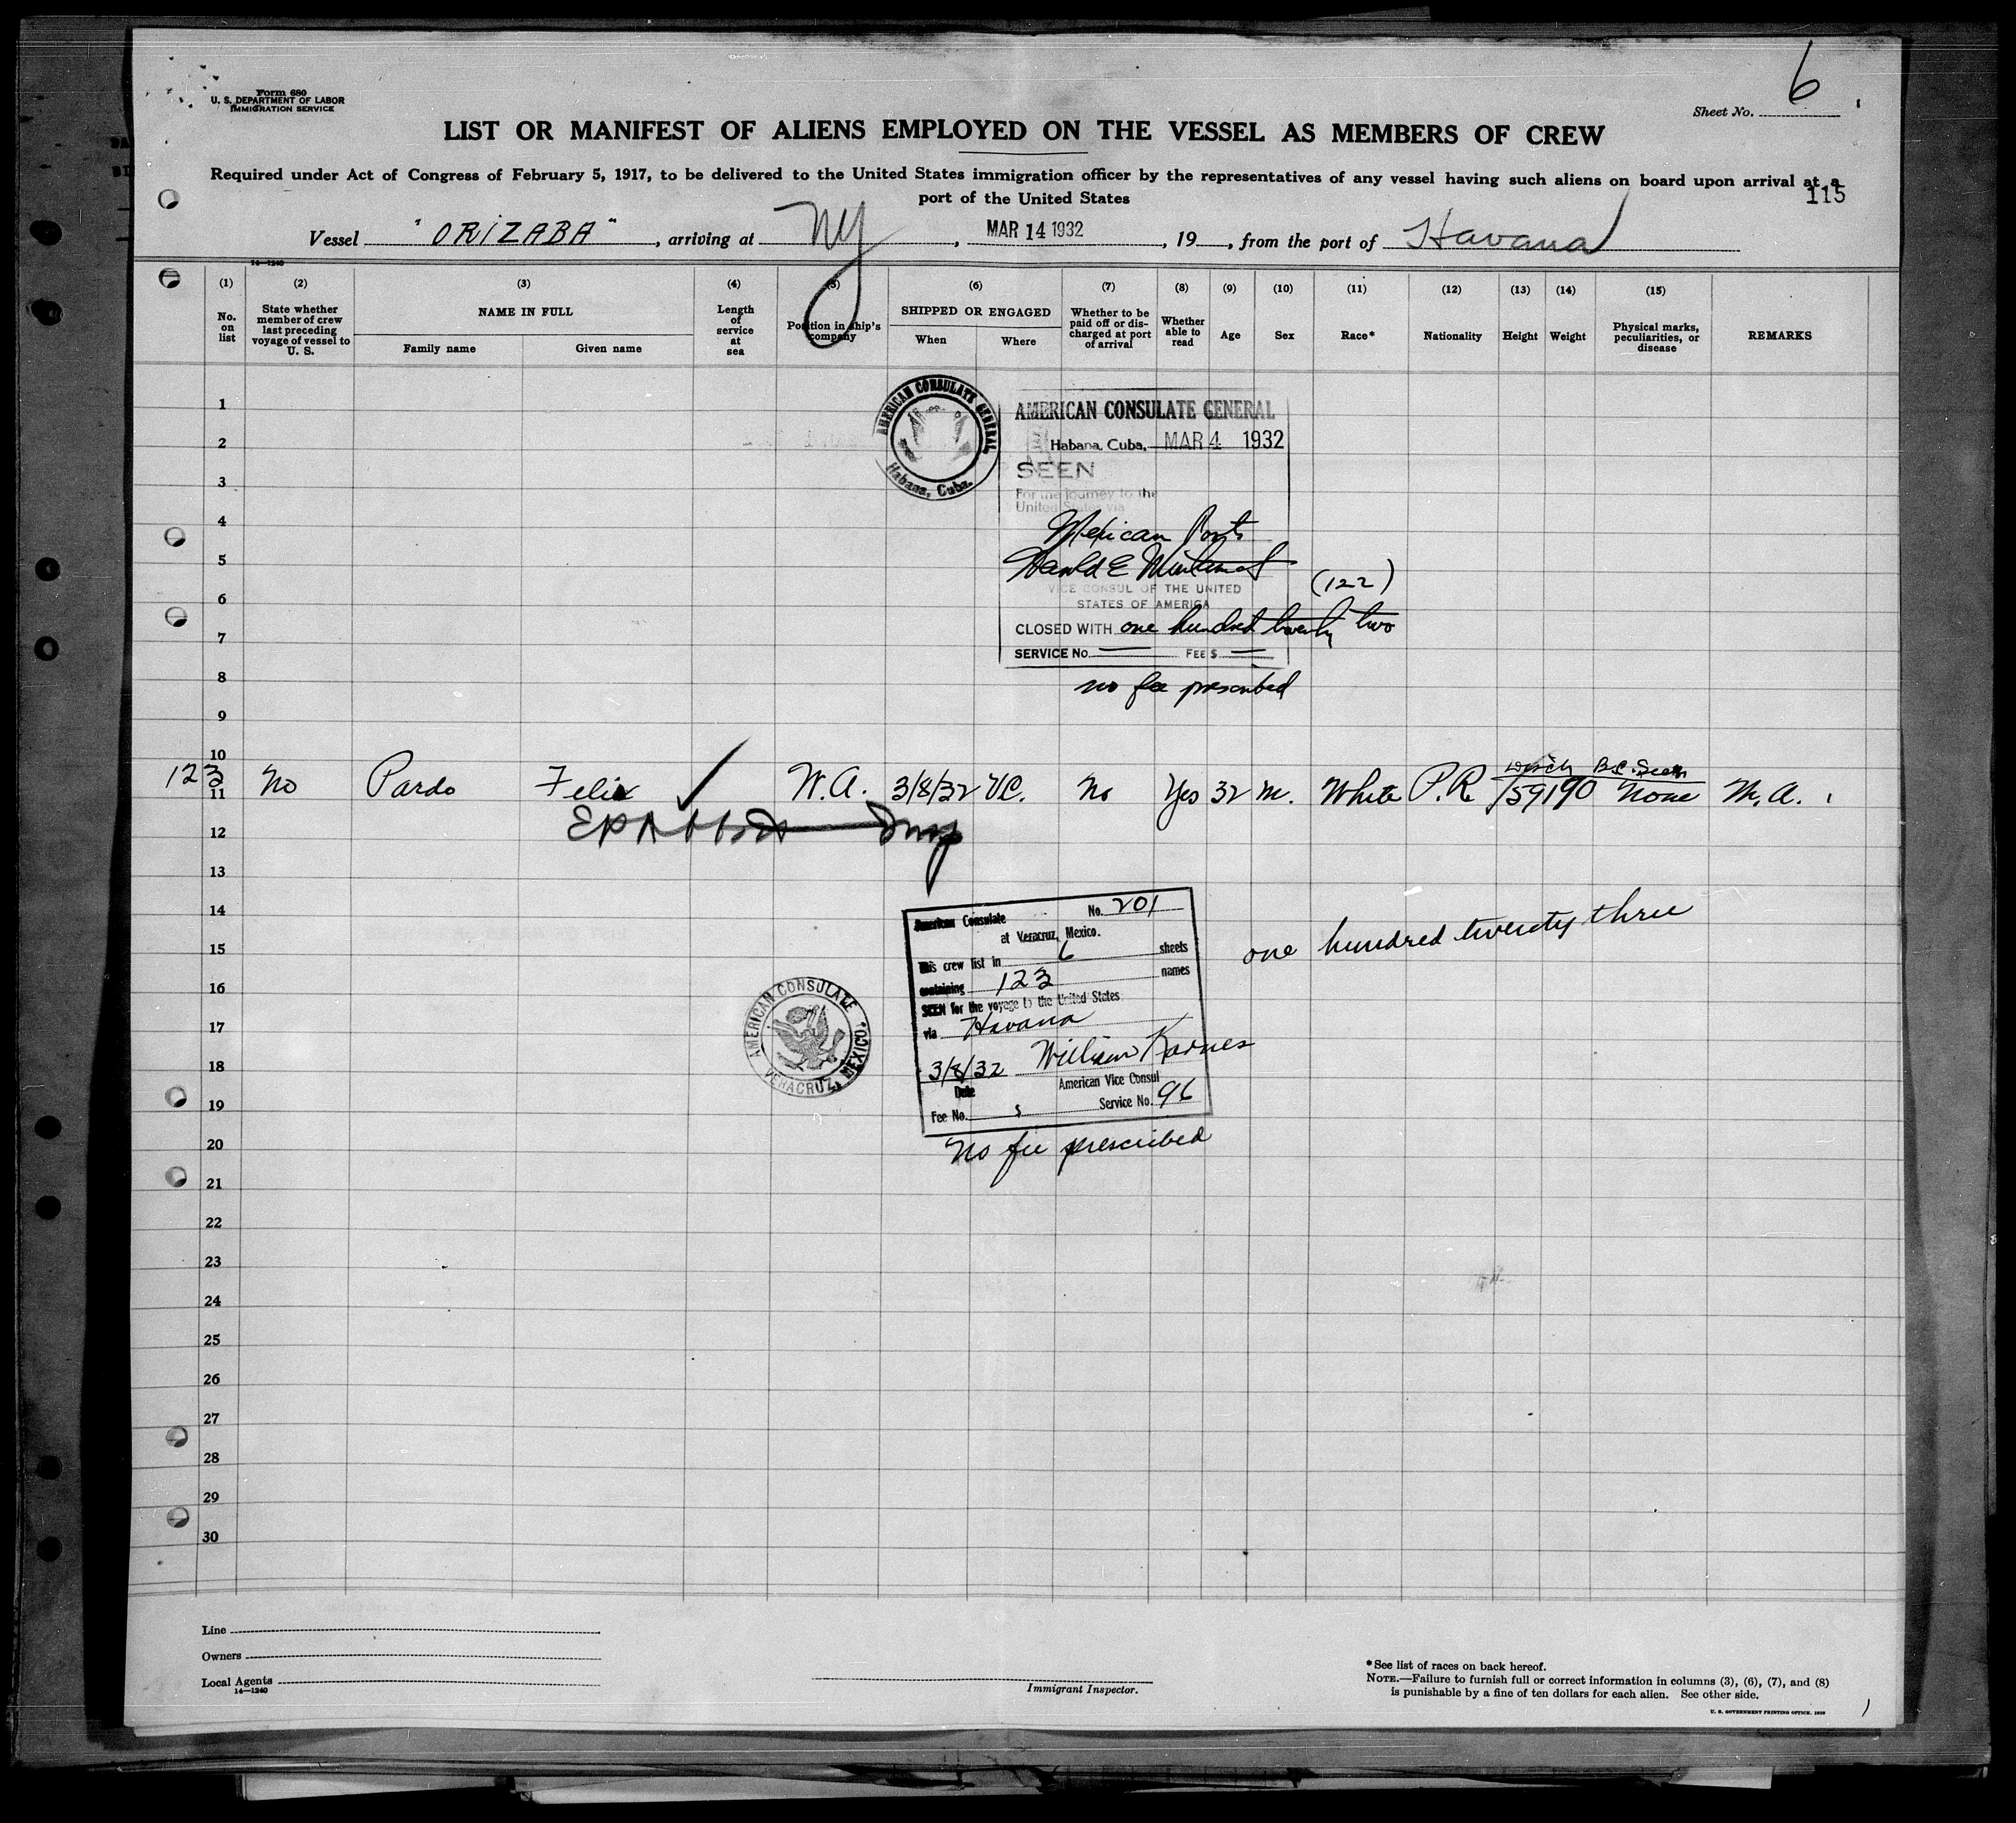 6
Form 680
U. S. DEPARTMENT OF LABOR
IMMIGRATION SERVICE
Sheet No.
LIST OR MANIFEST OF ALIENS EMPLOYED ON THE VESSEL AS MEMBERS OF CREW
Required under Act of Congress of February 5, 1917, to be delivered to the United States immigration officer by the representatives of any vessel having such aliens on board upon arrival at a
port of the United States
115
Vessel "ORIZABA", arriving at NY, MAR 14 1932, 19 , from the port of Havana
14—1240
(1) (2) (3) (4) (5) (6) (7) (8) (9) (10) (11) (12) (13) (14) (15)
No. on list
State whether member of crew last preceding voyage of vessel to U. S.
NAME IN FULL
Family name
Given name
Length of service at sea
Position in ship's company
SHIPPED OR ENGAGED
When
Where
Whether to be paid off or discharged at port of arrival
Whether able to read
Age
Sex
Race*
Nationality
Height
Weight
Physical marks, peculiarities, or disease
REMARKS
AMERICAN CONSULATE GENERAL
Habana, Cuba.
AMERICAN CONSULATE GENERAL
Habana, Cuba, MAR 4 1932
SEEN
For the journey to the
United States via
Mexican Ports
Harold E
VICE CONSUL OF THE UNITED
STATES OF AMERICA
(122)
CLOSED WITH one hundred twenty two
SERVICE No. FEE $
no fee prescribed
1
2
3
4
5
6
7
8
9
10
B.C. Seen
123 11 No Pardo Felix W.A. 3/8/32 V.C. No Yes 32 m. White P.R. 159 190 None M.A.
12
13
14
15
16
17
18
19
20
21
22
23
24
25
26
27
28
29
30
American Consulate No. 201
at Veracruz, Mexico.
This crew list in 6 sheets
containing 123 names
SEEN for the voyage to the United States
via Havana
3/8/32 William Karnes
Date American Vice Consul
Fee No. $ Service No. 96
No fee prescribed
one hundred twenty three
AMERICAN CONSULATE
VERACRUZ, MEXICO.
Line
Owners
Local Agents
14—1240
Immigrant Inspector.
*See list of races on back hereof.
NOTE.—Failure to furnish full or correct information in columns (3), (6), (7), and (8)
is punishable by a fine of ten dollars for each alien. See other side.
U. S. GOVERNMENT PRINTING OFFICE. 1929